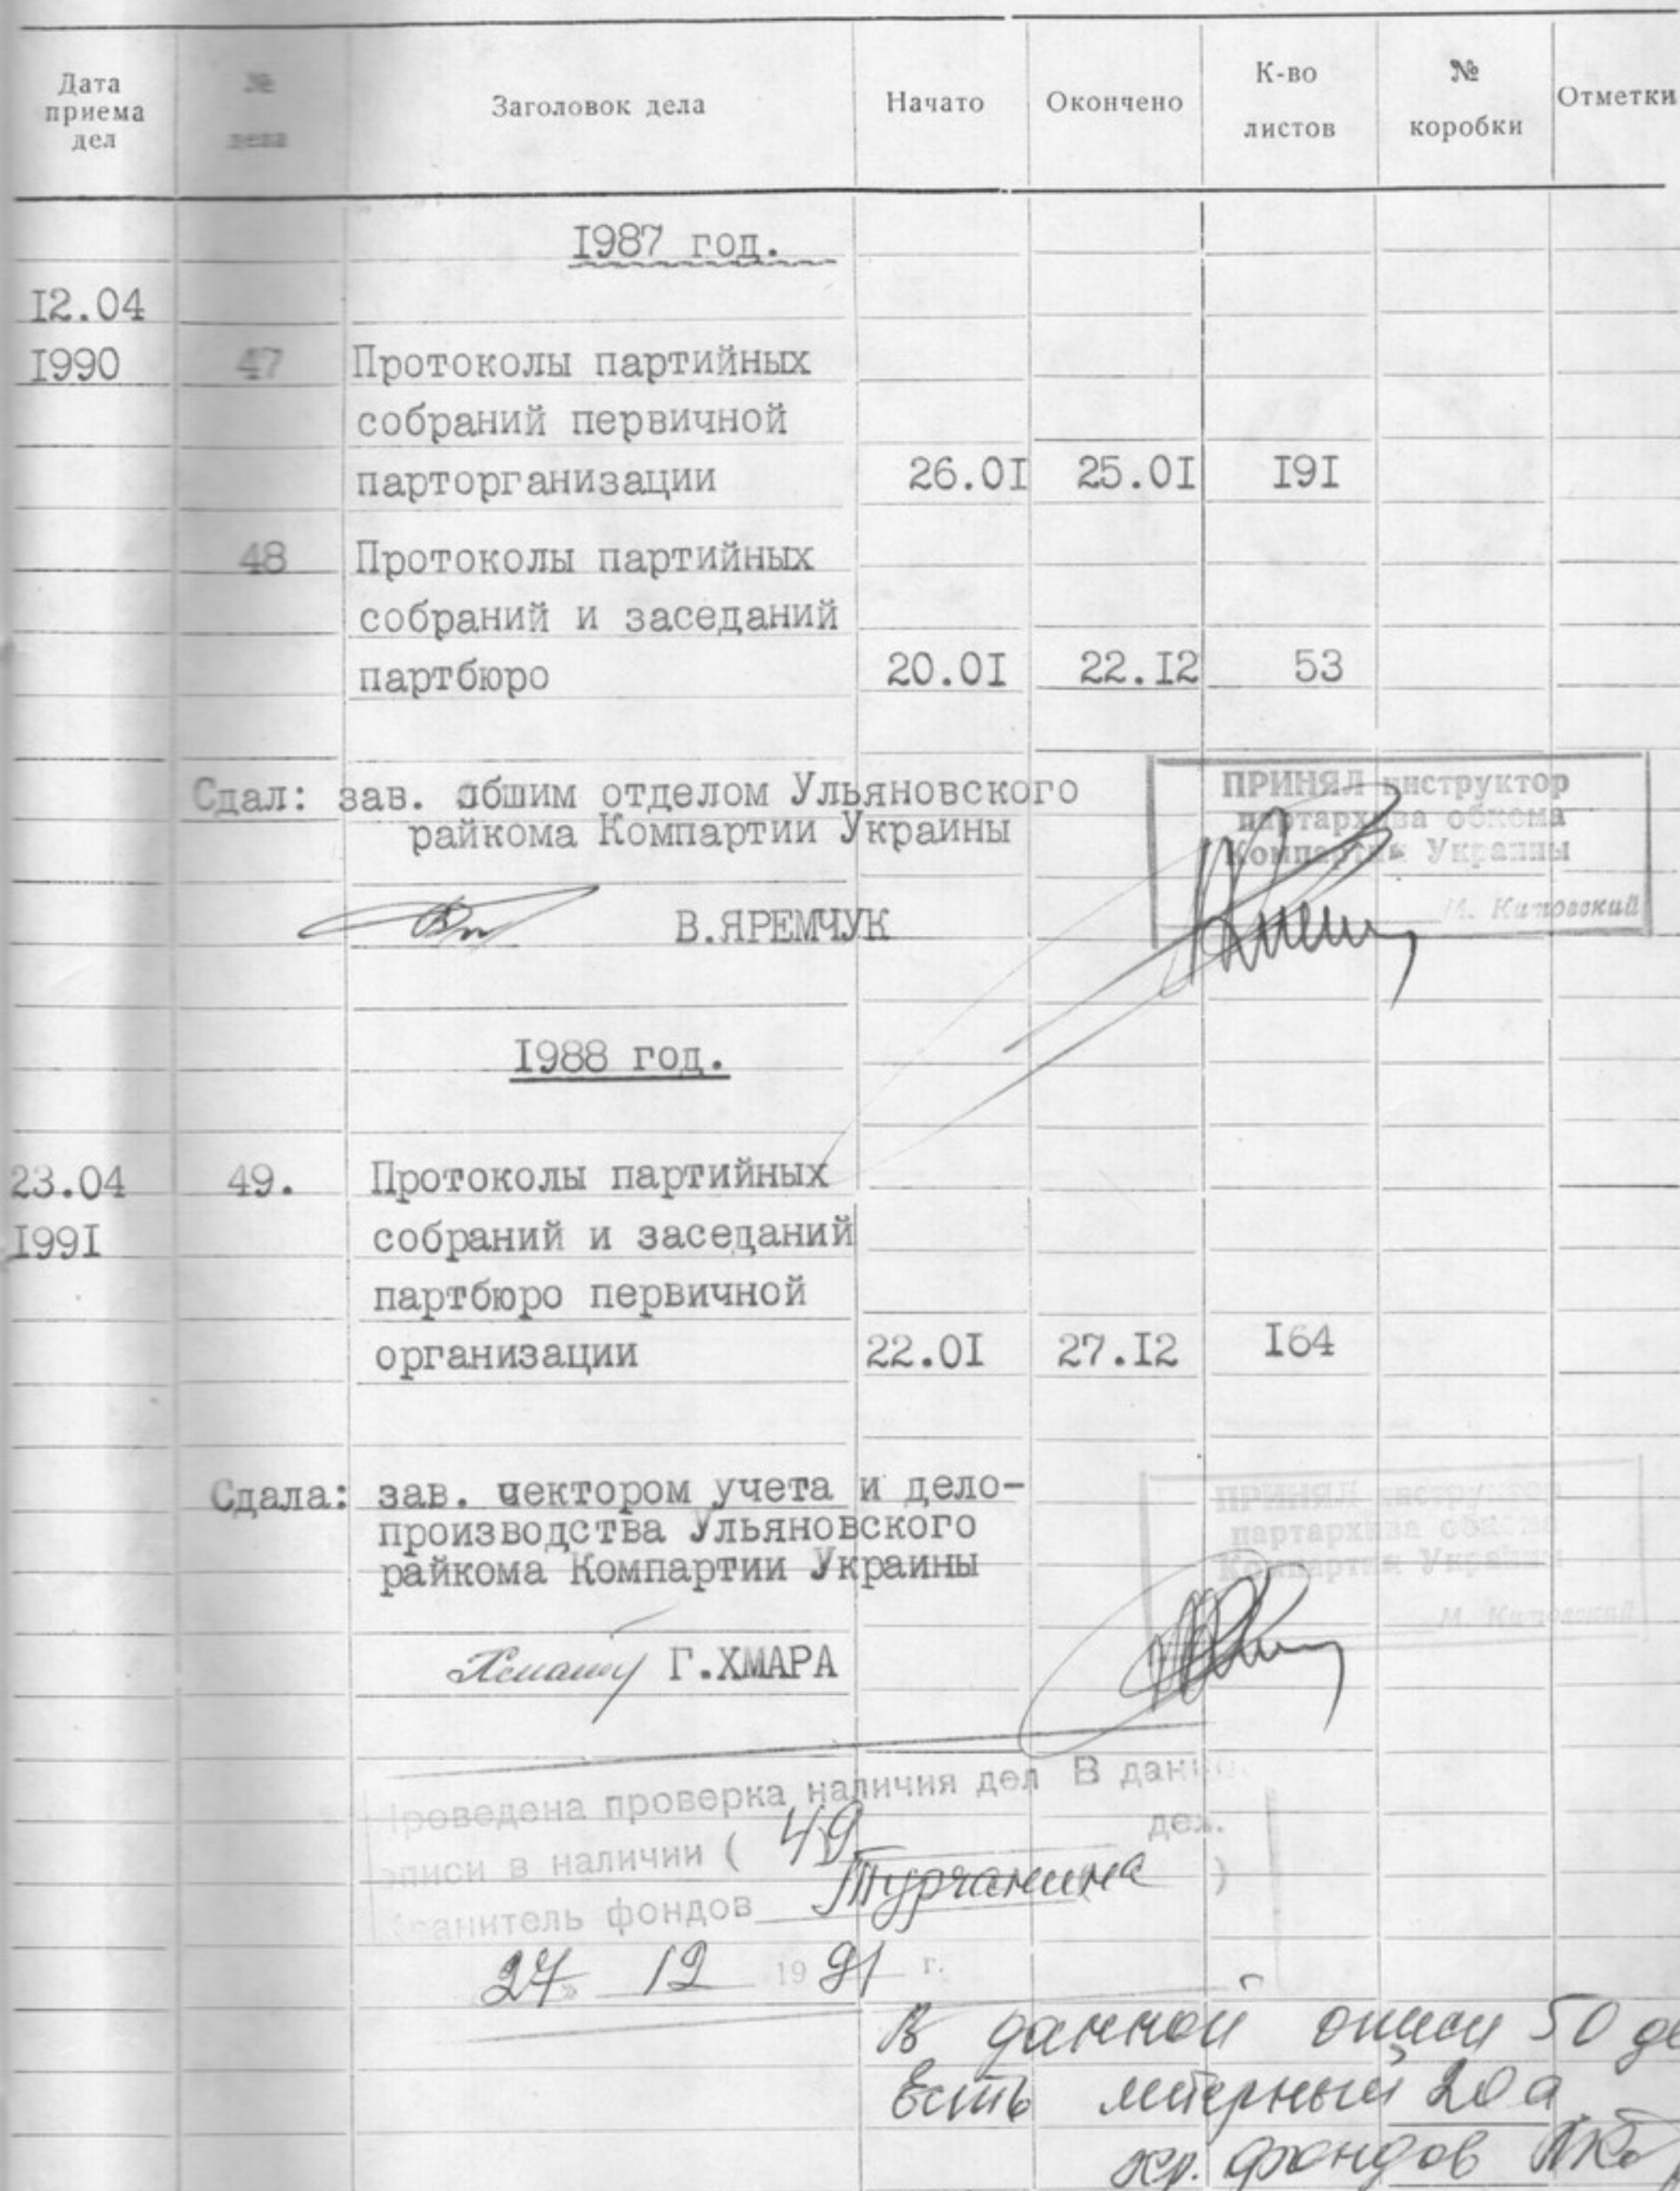 Дата приема дел № дела Заголовок дела Начато Окончено К-во листов № коробки Отметки
1987 год.
12.04
1990 47 Протоколы партийных
собраний первичной
парторганизации 26.01 25.01 191
48 Протоколы партийных
собраний и заседаний
партбюро 20.01 22.12 53
Сдал: зав. общим отделом Ульяновского
райкома Компартии Украины
В.ЯРЕМЧУК
ПРИНЯЛ инструктор
партархива обкома
Компартии Украины
М.
1988 год.
23.04 49. Протоколы партийных
1991 собраний и заседаний
партбюро первичной
организации 22.01 27.12 164
Сдала: зав. чектором учета и дело-
производства Ульяновского
райкома Компартии Украины
Г.ХМАРА
ПРИНЯЛ инструктор
партархива обкома
Компартии Украины
М.
Проведена проверка наличия дел В данн
описи в наличии ( 49 дел.
Хранитель фондов Турчанина )
27 12 1991 г.
В данной описи 50 де
Есть литерный 20а
хр. фондов